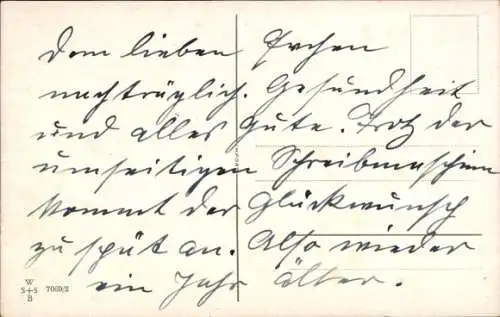 Dem lieben Frchen
nachträglich. Gesundheit
und alles Gute. Trotz der
umseitigen Schreibmaschine
kommt der Glückwunsch
zu spät an. Also wieder
ein Jahr älter.
W
S+S 7060/2
B